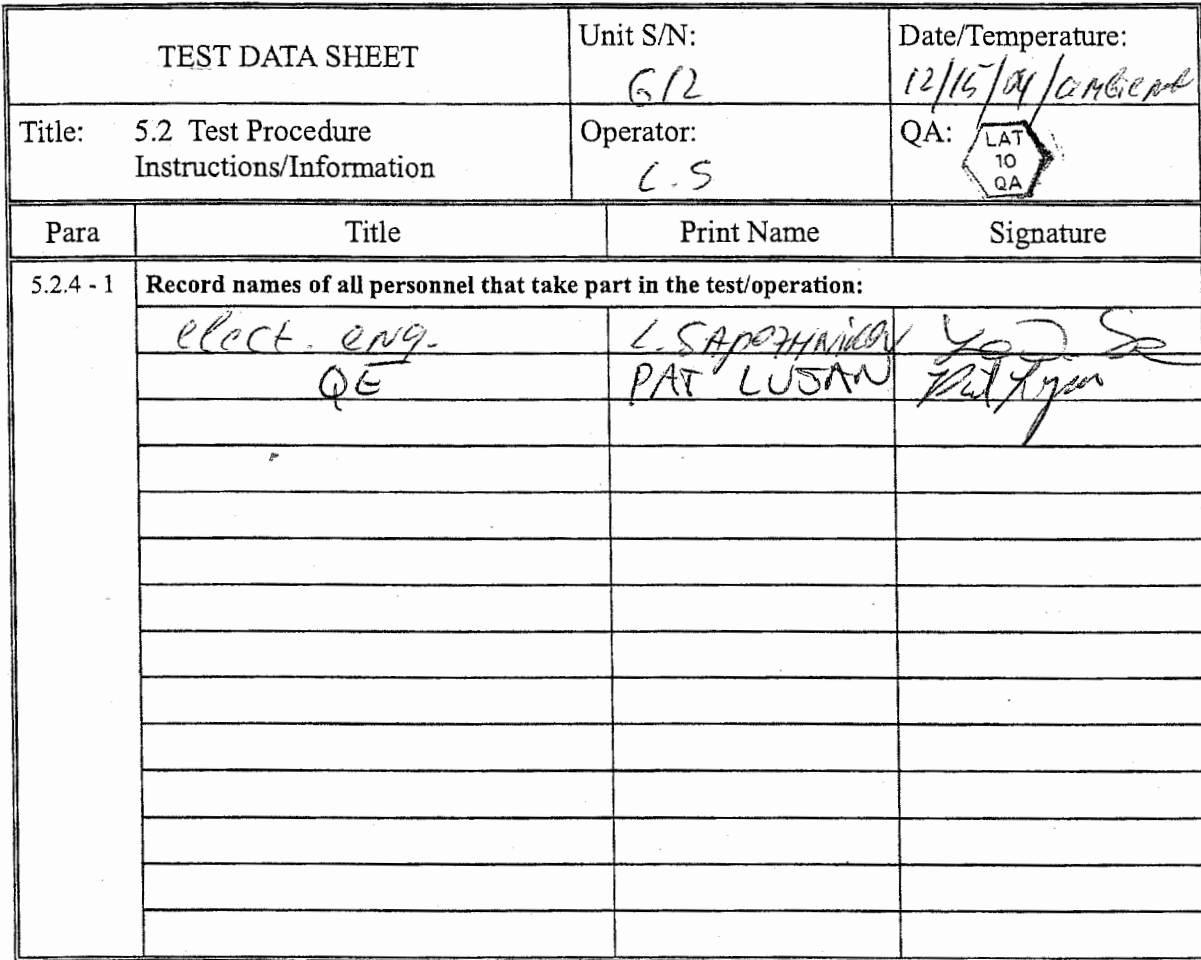 TEST DATA SHEET
Unit S/N:
G12
Date/Temperature:
12/15/04/ambient
Title: 5.2 Test Procedure
Instructions/Information
Operator:
L.S
QA:
LAT
10
QA
Para Title Print Name Signature
5.2.4 - 1 Record names of all personnel that take part in the test/operation:
elect. eng. L. SAPOZHNIKOV
QE PAT LUJAN Pat Lujan